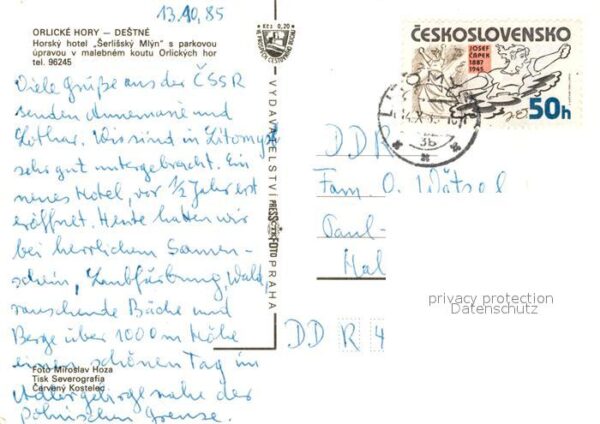 13.10.85
ORLICKÉ HORY — DEŠTNÉ
Horský hotel „Šerlišský Mlýn" s parkovou
úpravou v malebném koutu Orlických hor
tel. 96245
Viele Grüße aus der ČSSR
senden Annemarie und
Lothar. Wir sind in Litomyšl
sehr gut untergebracht. Ein
neues Hotel, vor ½ Jahr erst
eröffnet. Heute hatten wir
bei herrlichem Sonnen-
schein, Laubfärbung, Wald,
rauschende Bäche und
Berge über 1000 m Höhe
einen schönen Tag im
Adlergebirge nahe der
polnischen Grenze.
Foto Miroslav Hoza
Tisk Severografia
Červený Kostelec
Kčs 0,20
VYDAVATELSTVÍ PRESSFOTO PRAHA
ČESKOSLOVENSKO
JOSEF
ČAPEK
1887
1945
50h
3b
DDR
Fam. O. Wätzol
Paul-
Hal
DDR 4
privacy protection
Datenschutz